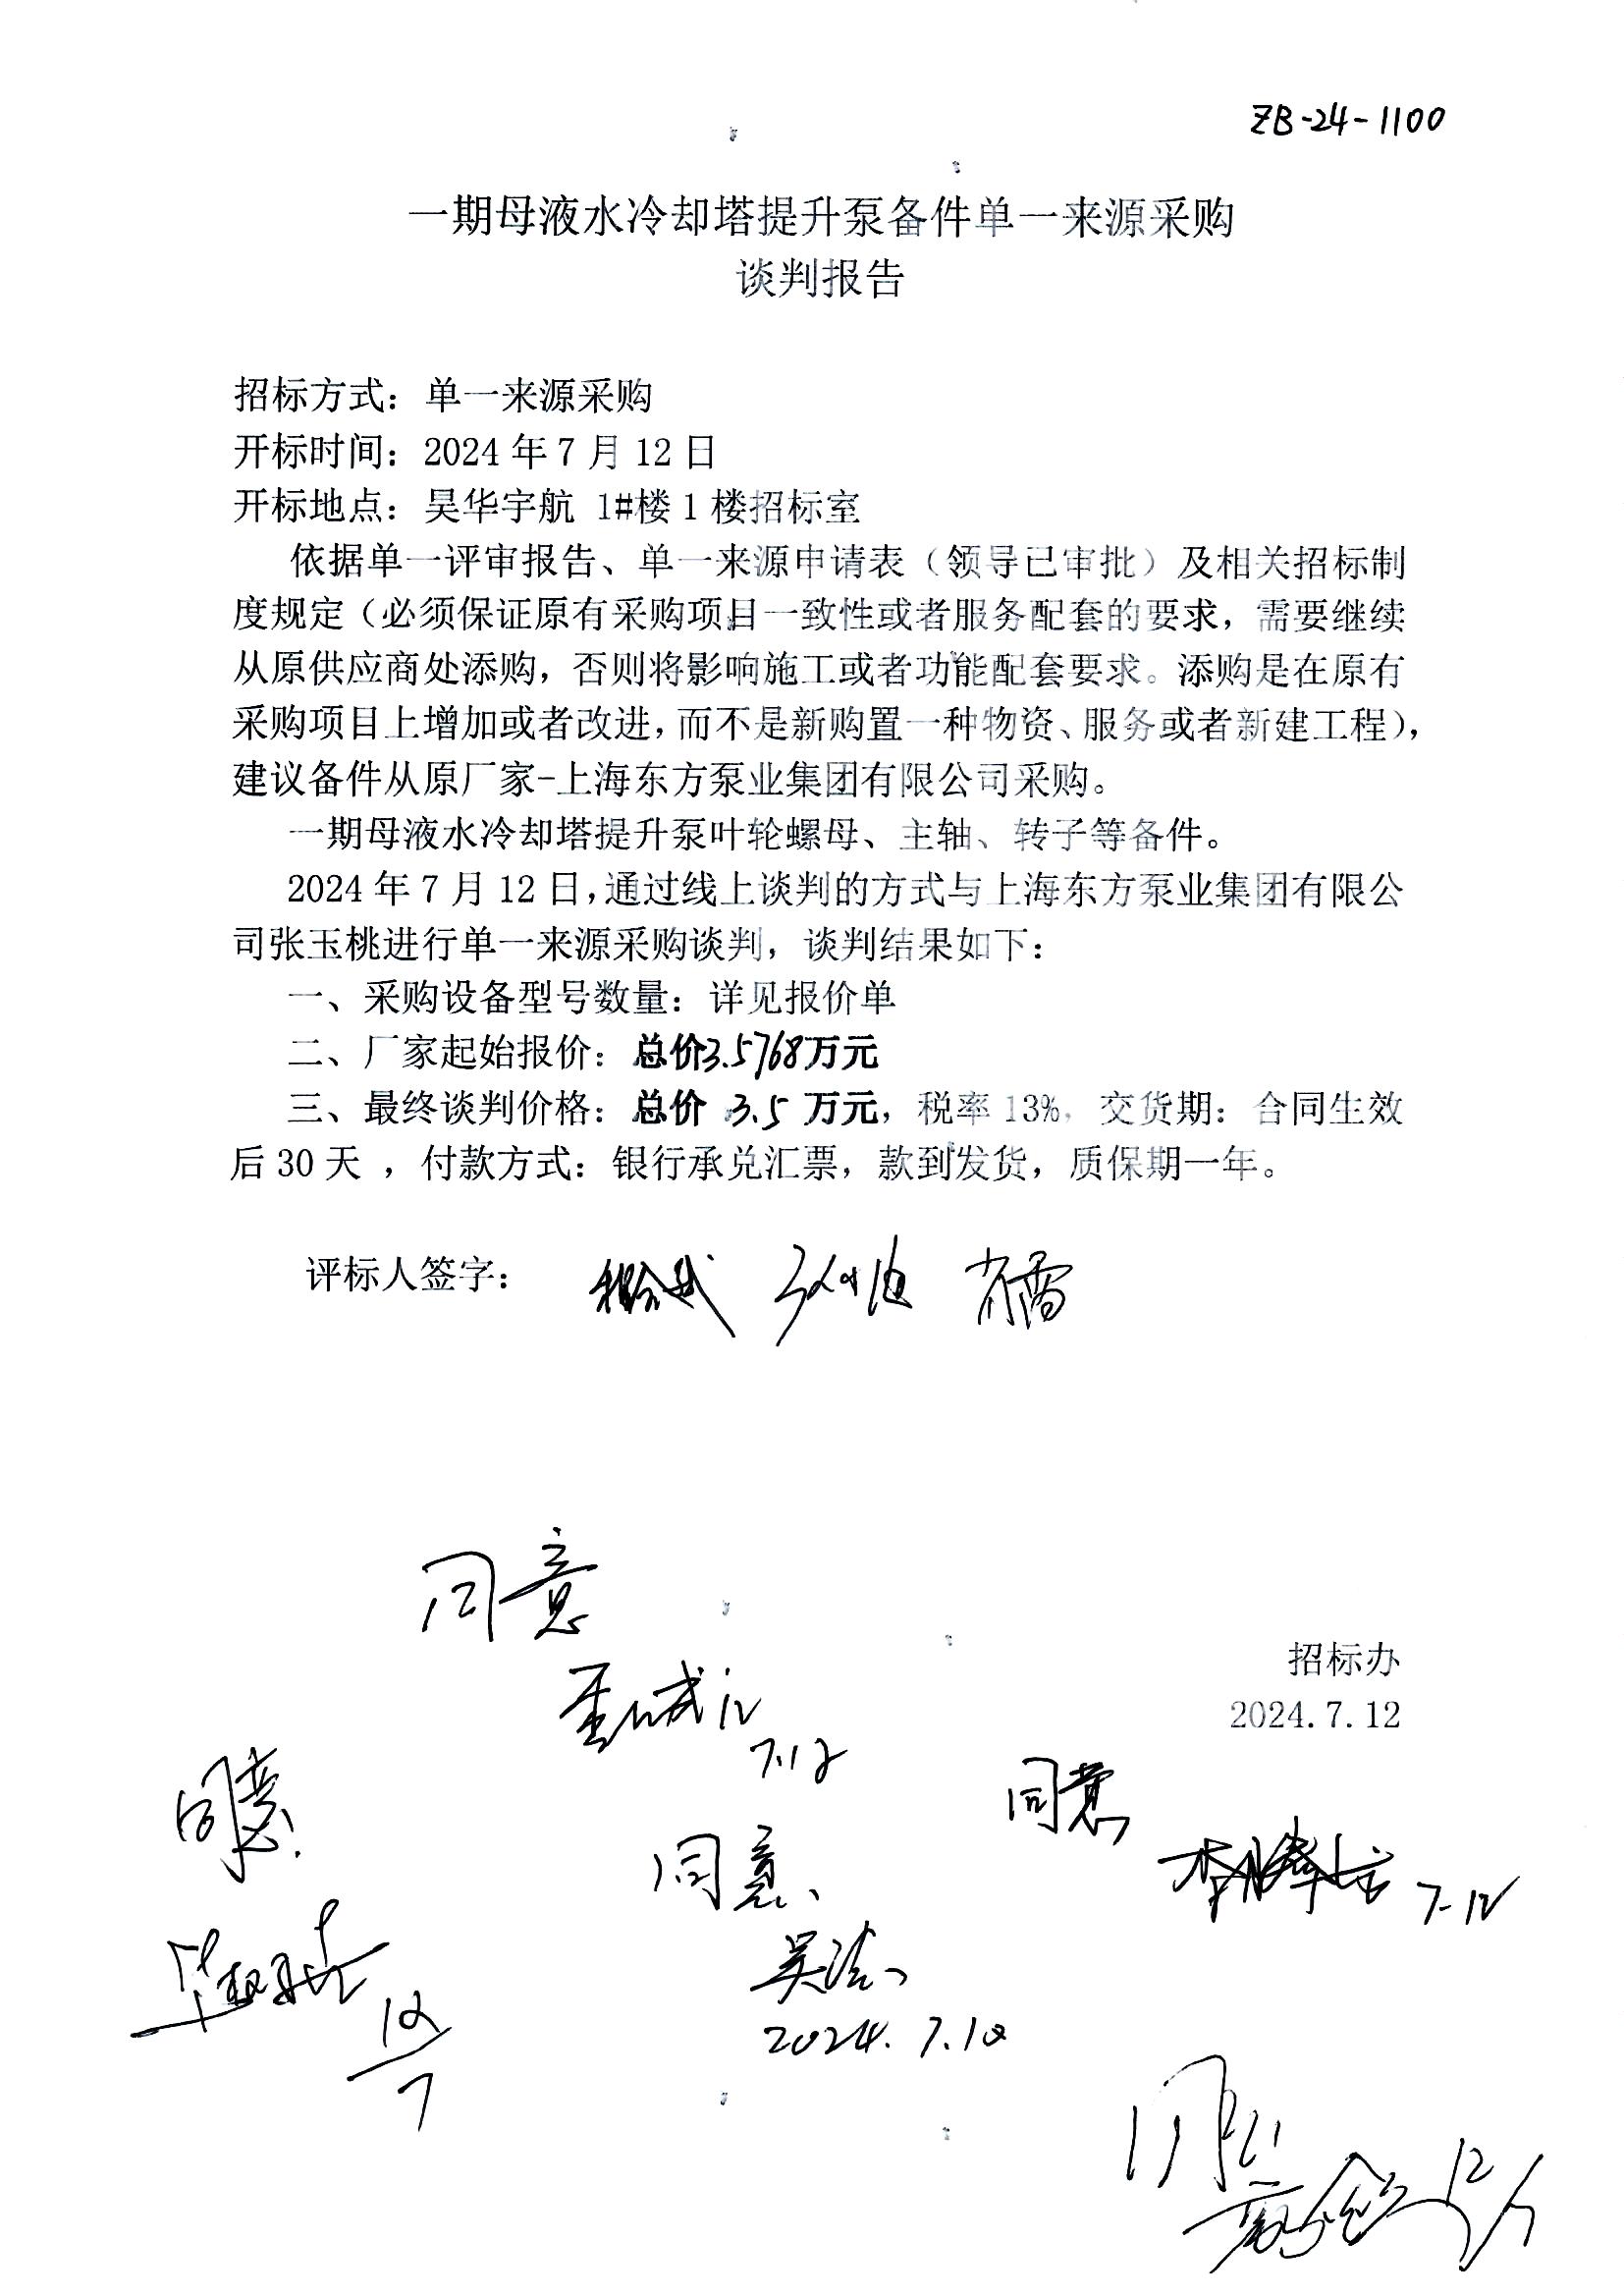 ZB-24-1100
一期母液水冷却塔提升泵备件单一来源采购
谈判报告
招标方式：单一来源采购
开标时间：2024年7月12日
开标地点：昊华宇航 1#楼1楼招标室
依据单一评审报告、单一来源申请表（领导已审批）及相关招标制
度规定（必须保证原有采购项目一致性或者服务配套的要求，需要继续
从原供应商处添购，否则将影响施工或者功能配套要求。添购是在原有
采购项目上增加或者改进，而不是新购置一种物资、服务或者新建工程），
建议备件从原厂家-上海东方泵业集团有限公司采购。
一期母液水冷却塔提升泵叶轮螺母、主轴、转子等备件。
2024年7月12日，通过线上谈判的方式与上海东方泵业集团有限公
司张玉桃进行单一来源采购谈判，谈判结果如下：
一、采购设备型号数量：详见报价单
二、厂家起始报价：总价3.5768万元
三、最终谈判价格：总价 3.5 万元，税率13%，交货期：合同生效
后30天 ，付款方式：银行承兑汇票，款到发货，质保期一年。
评标人签字：
同意
招标办
2024.7.12
7.12
同意
同意
7-12
同意、
12/7
吴浩
2024.7.12
同意
12/7